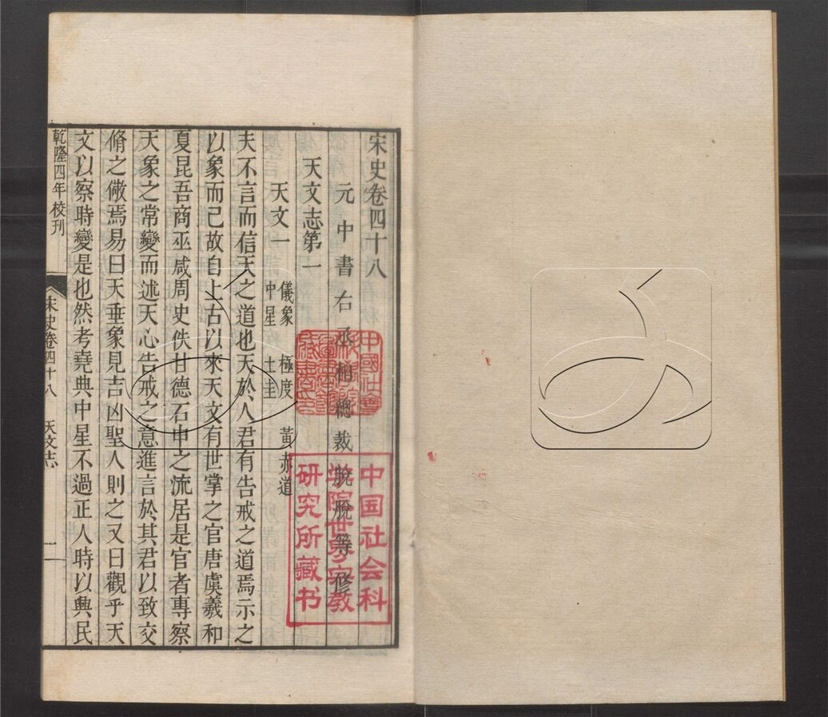 宋史卷四十八
元中書右丞相總裁脫脫等修
天文志第一
天文一
儀象 極度 黃赤道
中星 土圭
夫不言而信天之道也天於人君有告戒之道焉示之
以象而已故自上古以來天文有世掌之官唐虞羲和
夏昆吾商巫咸周史佚甘德石申之流居是官者專察
天象之常變而述天心告戒之意進言於其君以致交
脩之儆焉易曰天垂象見吉凶聖人則之又曰觀乎天
文以察時變是也然考堯典中星不過正人時以興民
乾隆四年校刊
宋史卷四十八 天文志
一
中国社会科
学院世界宗教
研究所藏书